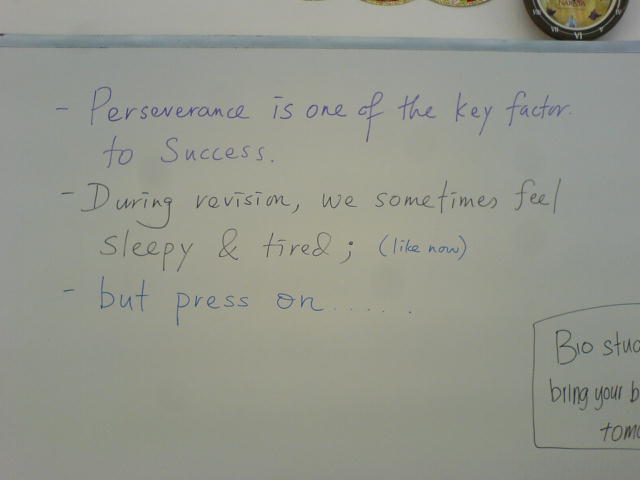 - Perseverance is one of the key factor.
to Success.
- During revision, we sometimes feel
sleepy & tired; (like now)
- but press on......
Bio
bring your